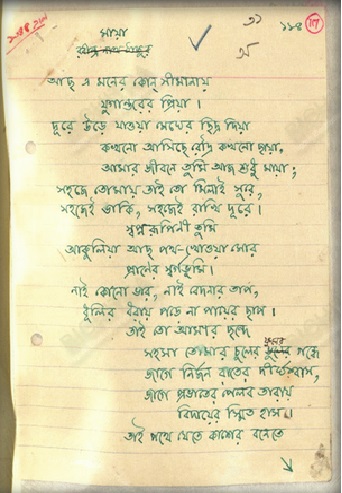 ১১৪
মায়া
রবীন্দ্রনাথ ঠাকুর
আছ এ মনের কোন্ সীমানায়
যুগান্তরের প্রিয়া।
দূরে উড়ে যাওয়া মেঘের ছিদ্র দিয়া
কখনো আসিছে রৌদ্র কখনো ছায়া,
আমার জীবনে তুমি আজ শুধু মায়া;
সহজে তোমায় তাই তো মিলাই সুরে,
সহজেই ডাকি, সহজেই রাখি দূরে।
স্বপ্নরূপিণী তুমি
আকুলিয়া আছ পথ-খোওয়া মোর
প্রাণের স্বর্গভূমি।
নাই কোনো ভার, নাই বেদনার তাপ,
ধূলির ধরায় পড়ে না পায়ের ছাপ।
তাই তো আমার ছন্দে
সহসা তোমার চুলের ফুলের গন্ধে
জাগে নির্জন রাতের দীর্ঘশ্বাস,
জাগে প্রভাতের পেলব তারায়
বিদায়ের স্মিত হাস।
তাই পথে যেতে কাশের বনেতে